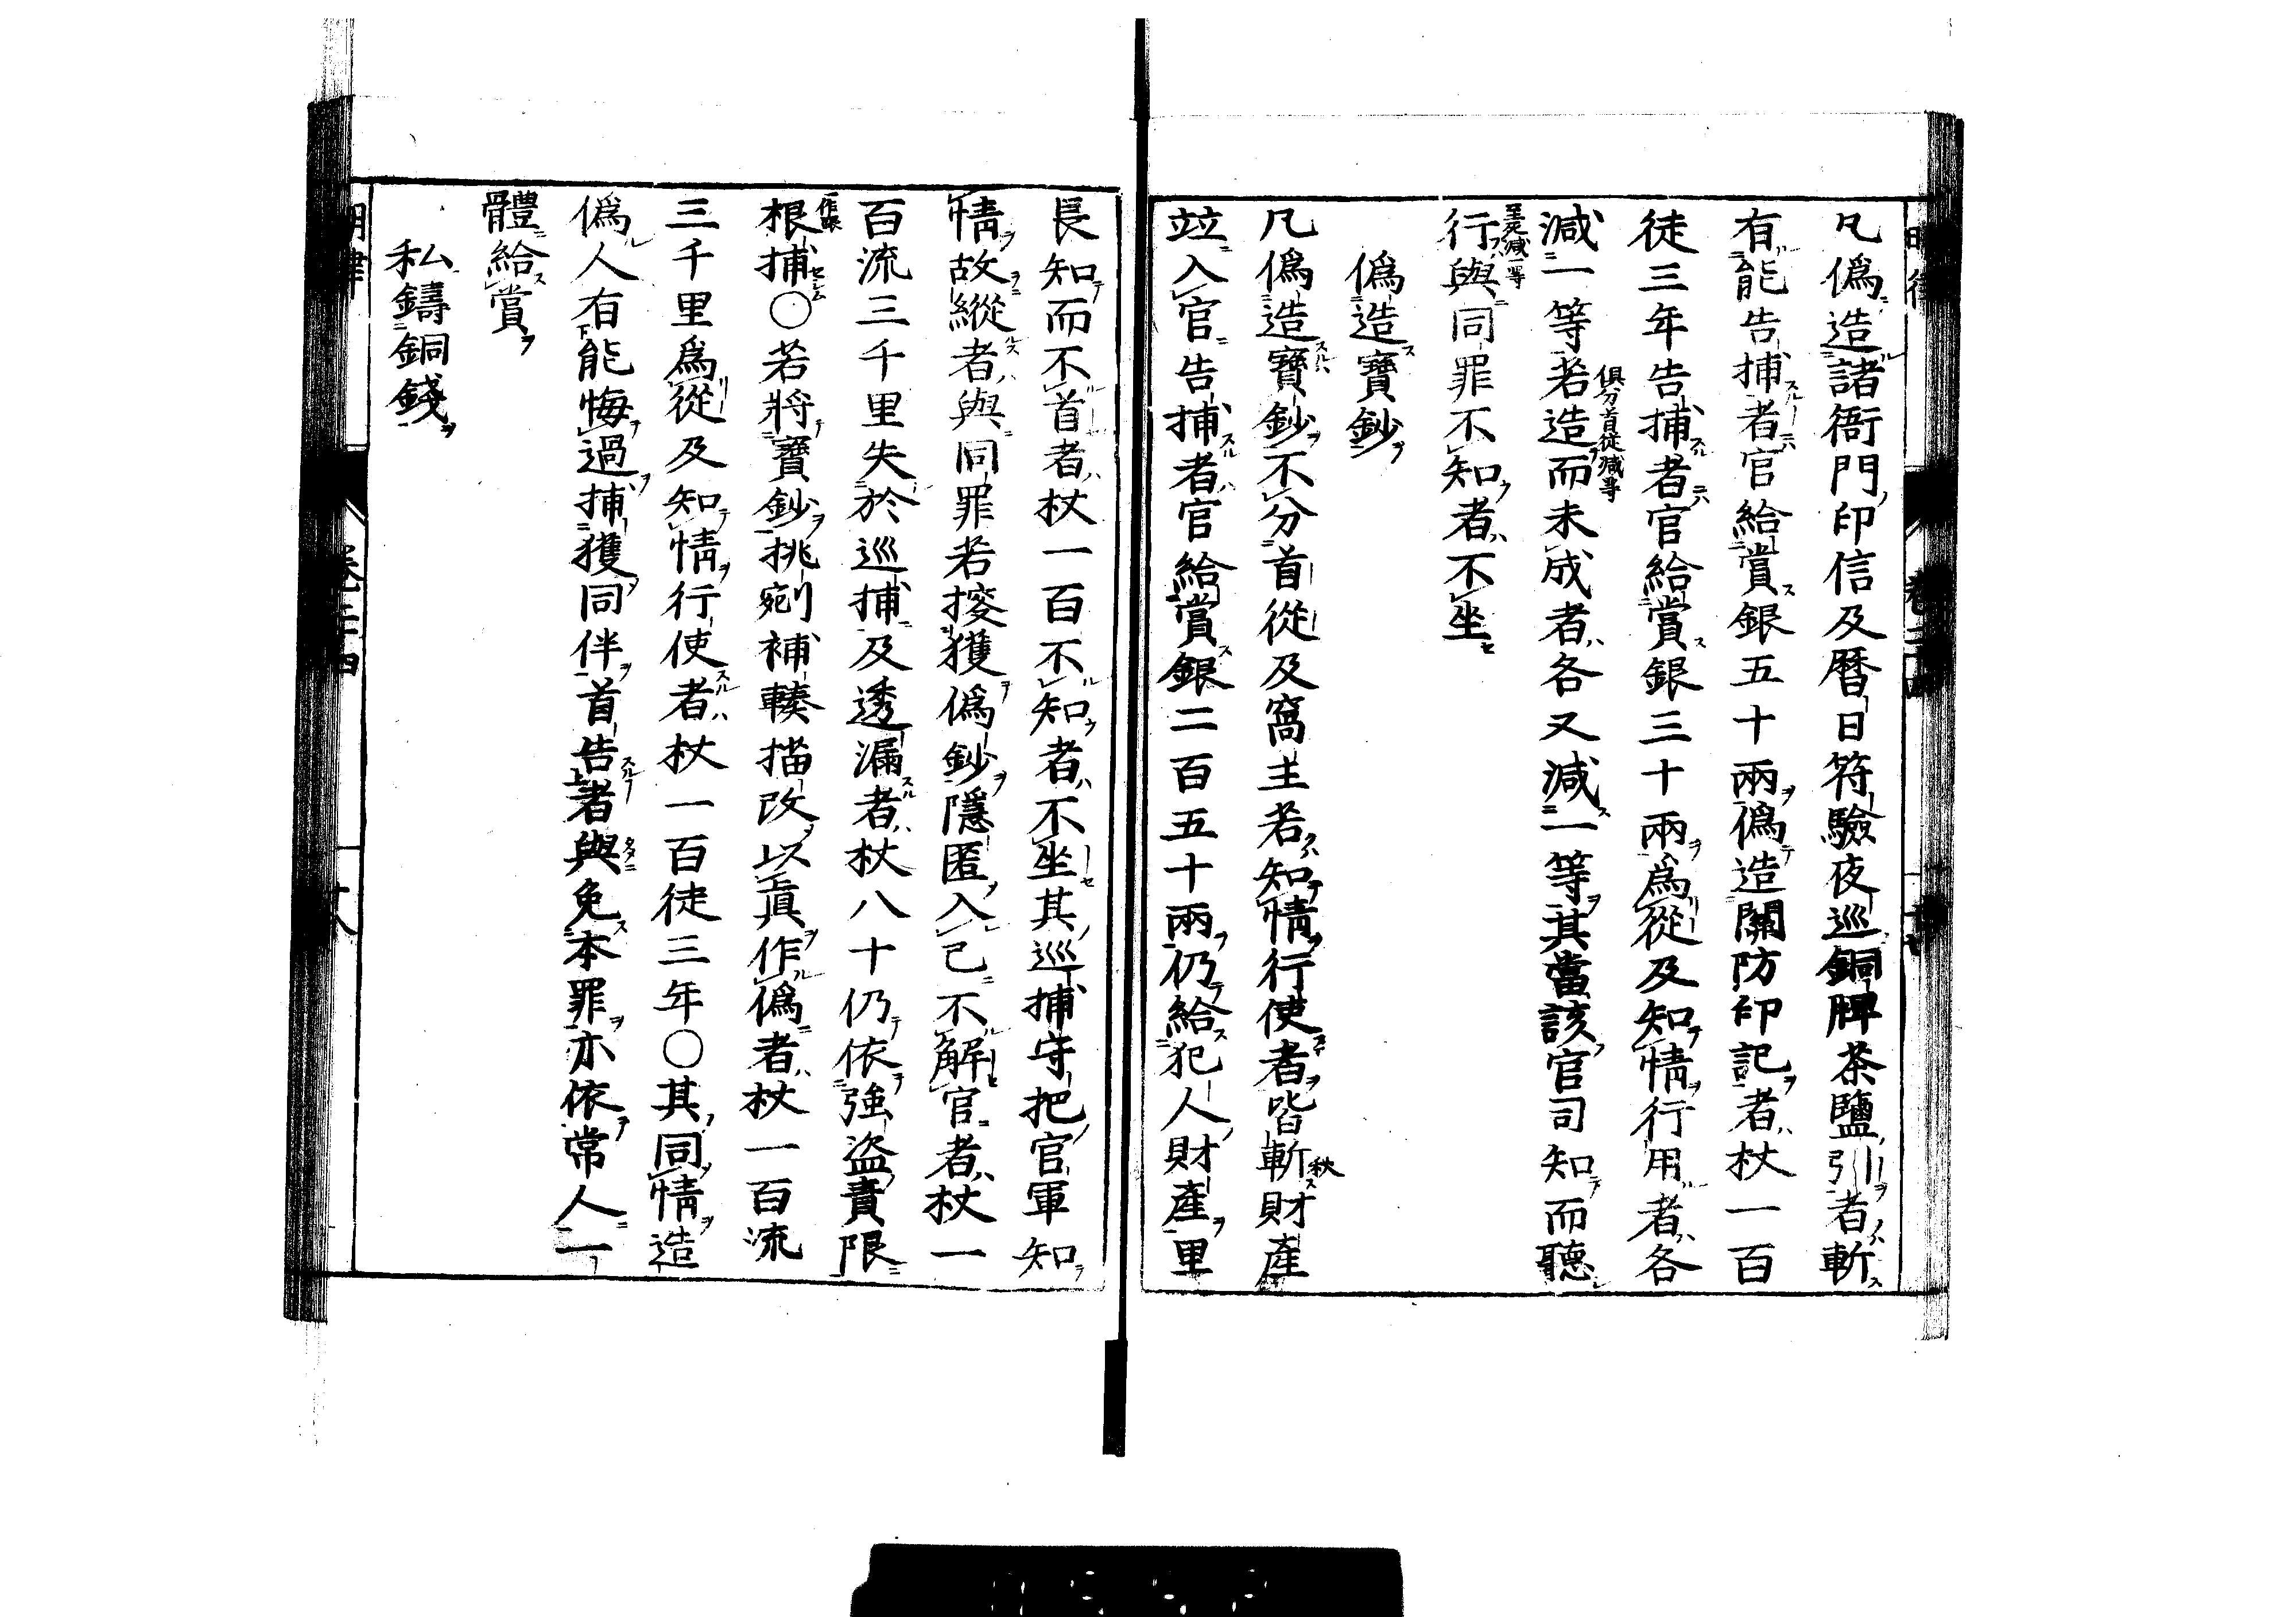 凡僞造諸衙門印信及曆日符驗夜巡銅牌茶鹽引者斬
有能告捕者官給賞銀五十兩僞造關防印記者杖一百
徒三年告捕者官給賞銀三十兩爲從及知情行用者各
俱分首從減等
減一等若造而未成者各又減一等其當該官司知而聽
至死減一等
行與同罪不知者不坐
僞造寶鈔
凡僞造寶鈔不分首從及窩主若知情行使者皆斬財產
秋
竝入官告捕者官給賞銀二百五十兩仍給犯人財產里
長知而不首者杖一百不知者不坐其巡捕守把官軍知
情故縱者與同罪若搜獲僞鈔隱匿入己不解官者杖一
百流三千里失於巡捕及透漏者杖八十仍依強盜責限
一作跟
根捕〇若將寶鈔挑剜補輳描改以眞作僞者杖一百流
三千里爲從及知情行使者杖一百徒三年〇其同情造
僞人有能悔過捕獲同伴首告者與免本罪亦依常人一
體給賞
私鑄銅錢
明律
卷二十四
十八